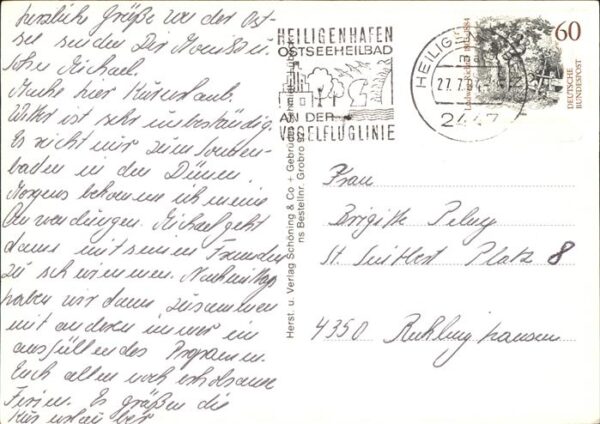 herzliche Grüße von der Ost-
see senden Dir Monika u.
Sohn Michael.
Mache hier Kururlaub.
Wetter ist sehr unbeständig.
Es reicht nur zum Sonnen-
baden in den Dünen.
Morgens bekomme ich meine
Anwendungen. Michael geht
dann mit seinen Freunden
zu schwimmen. Nachmittags
haben wir dann zusammen
mit anderen immer ein
ausfüllendes Programm.
Euch allen noch erholsame
Ferien. Es grüßen die
Kururlauber
HEILIGENHAFEN
OSTSEEHEILBAD
AN DER
VOGELFLUGLINIE
HEILIG
27.7.8
2447
60
DEUTSCHE
BUNDESPOST
Herst. u. Verlag Schöning & Co + Gebrüder Schmidt, Lübeck
ns Bestellnr. Grobro 9
Frau
Brigitte
St. Suitbert Platz 8
4350 Recklinghausen